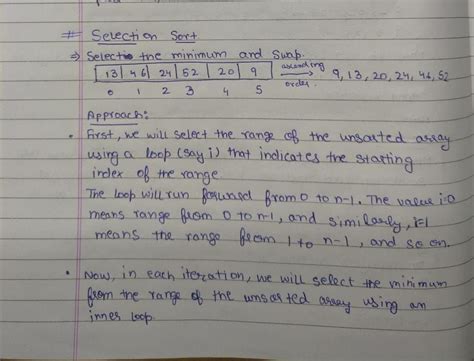 # Selection Sort
⇒ Selects the minimum and swap.
13 | 46 | 24 | 52 | 20 | 9 ascending order → 9, 13, 20, 24, 46, 52
0 1 2 3 4 5
Approach:
• First, we will select the range of the unsorted array
using a loop (say i) that indicates the starting
index of the range.
The loop will run forward from 0 to n-1. The value i=0
means range from 0 to n-1, and similarly, i=1
means the range from 1 to n-1, and so on.
• Now, in each iteration, we will select the minimum
from the range of the unsorted array using an
inner loop.